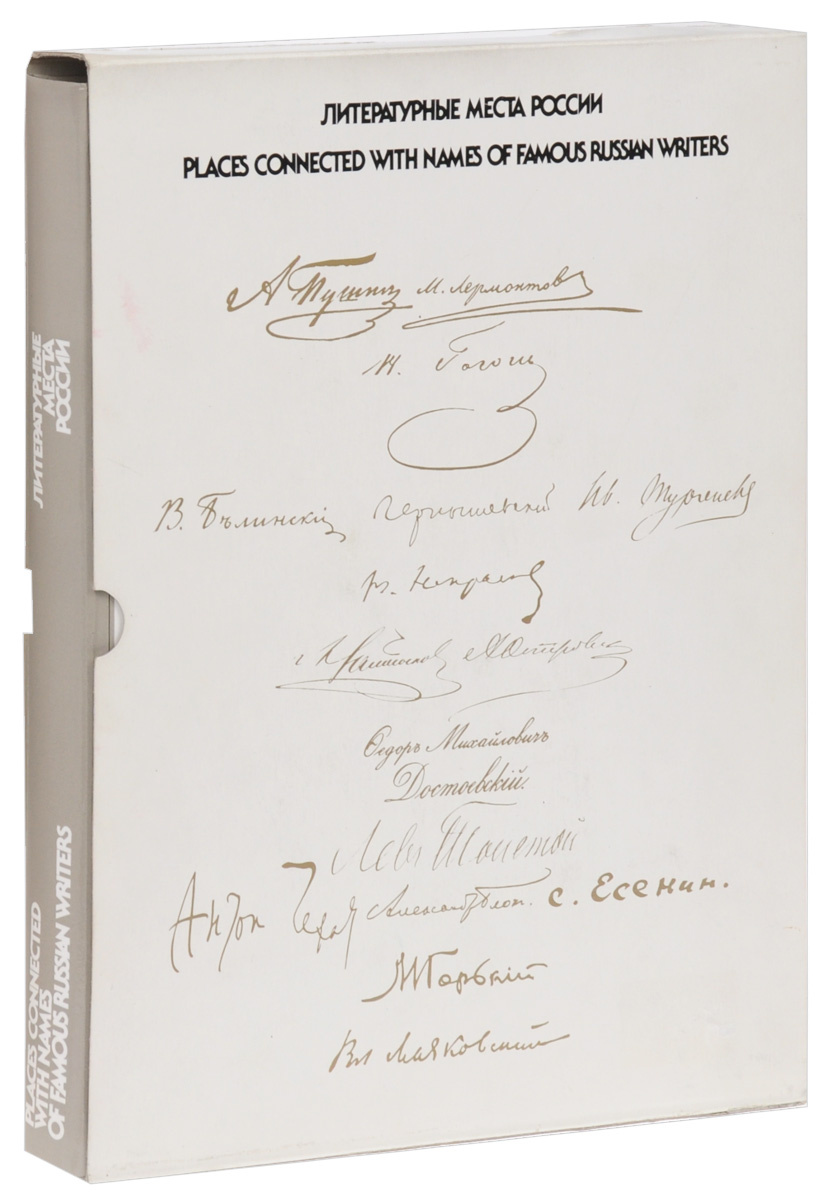 ЛИТЕРАТУРНЫЕ МЕСТА РОССИИ
PLACES CONNECTED WITH NAMES OF FAMOUS RUSSIAN WRITERS
А Пушкин М. Лермонтов
Н. Гоголь
В. Бѣлинскій Чернышевский Ив. Тургеневъ
Н. Некрасов
А Островск
Ѳедоръ Михайловичъ
Достоевскій.
Левъ Толстой
Антон Чехов Александръ Блок. С. Есенин.
М Горький
Вл Маяковский
ЛИТЕРАТУРНЫЕ
МЕСТА
РОССИИ
PLACES CONNECTED
WITH NAMES
OF FAMOUS RUSSIAN WRITERS